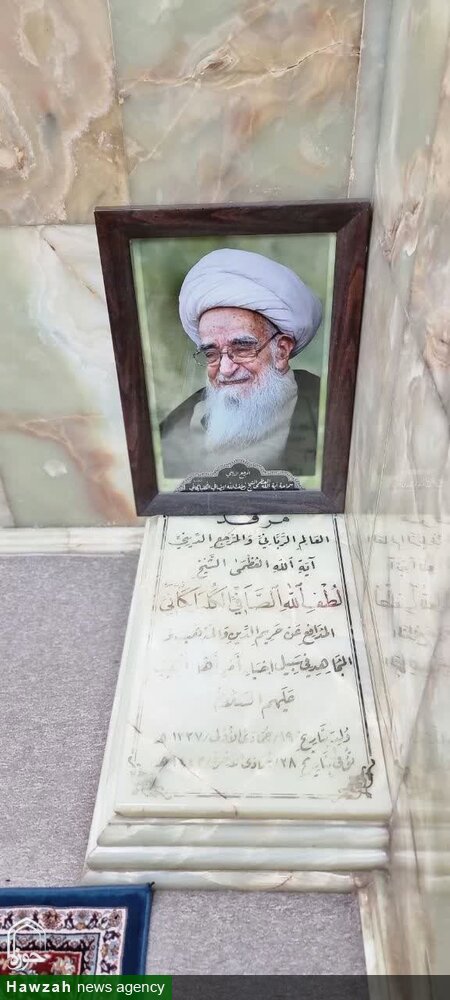 مرقد
العالم الرباني والمرجع الديني
آية الله العظمى الشيخ
لطف الله الصافي الگلپایگاني
المدافع عن حريم الدين والمذهب و
المجاهد في سبيل احياء أمر أهل البيت
عليهم السلام
ولد بتاريخ ١٩/ جمادى الأولى/ ١٣٣٧ هـ
توفي بتاريخ ٢٨/ جمادى
حوزه
Hawzah news agency